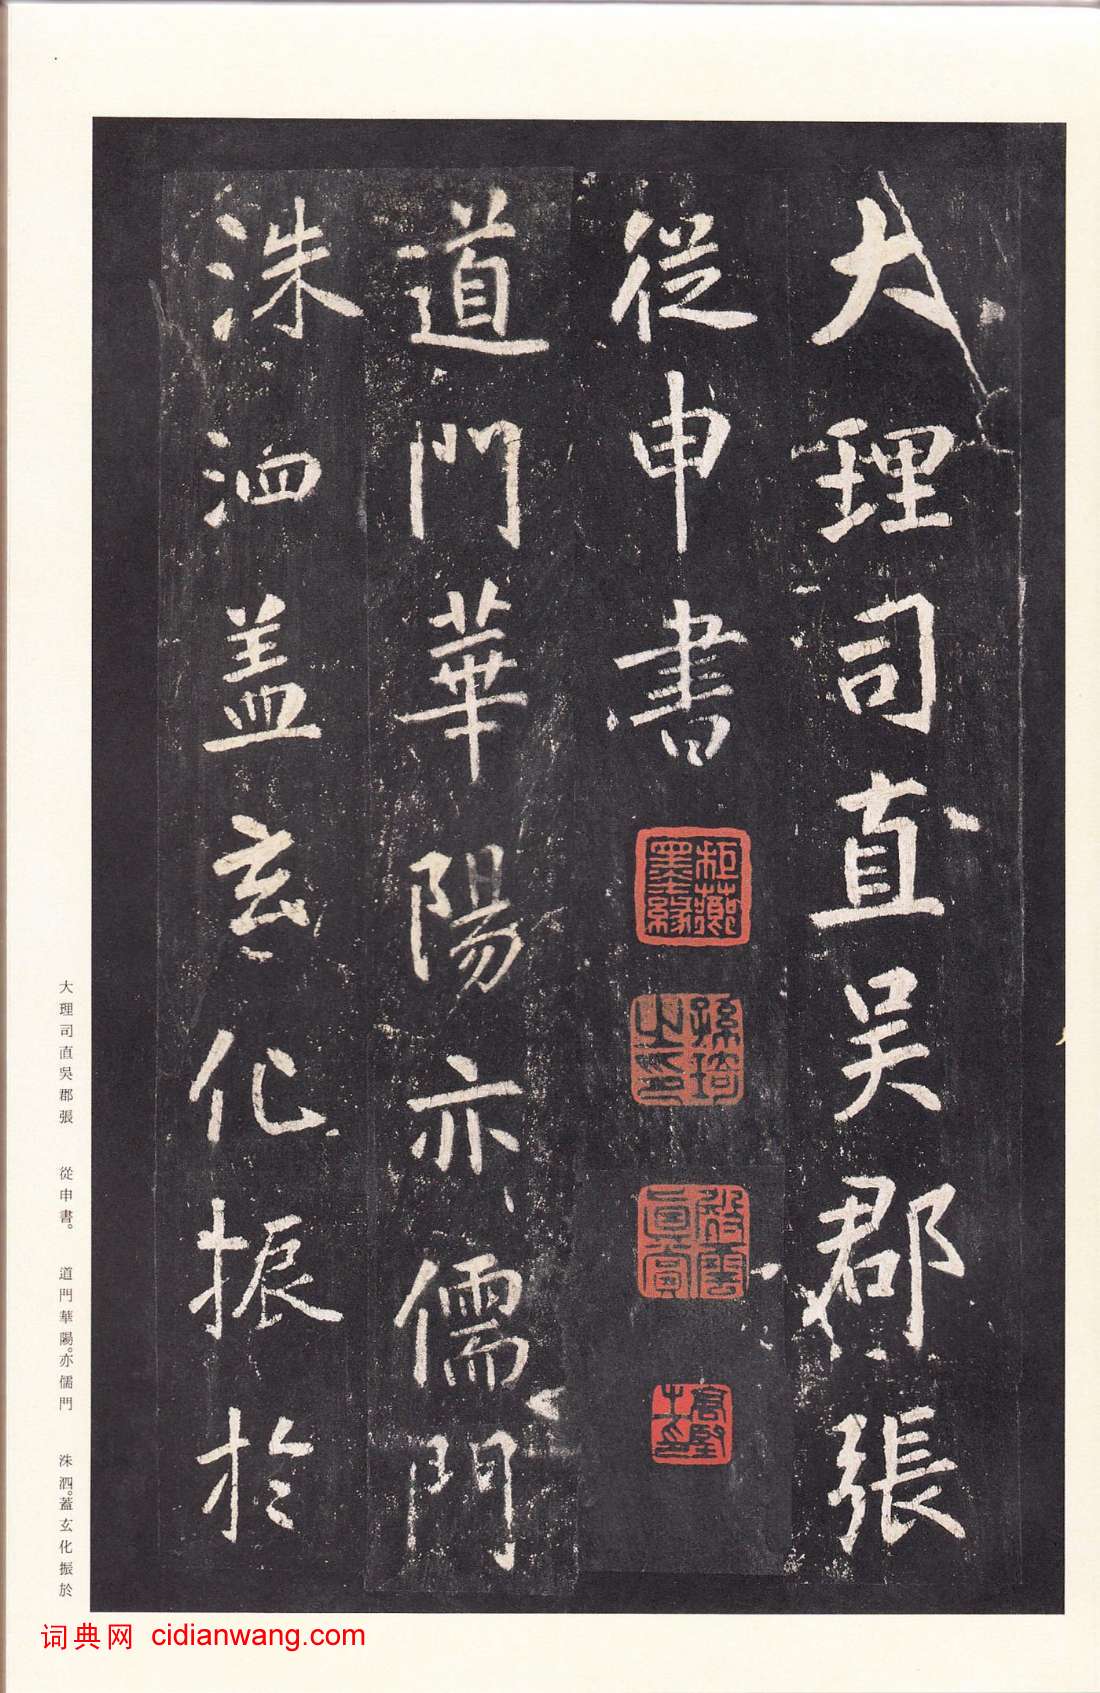 大理司直吴郡張
從申書
道門華陽亦儒門
洙泗盖玄化振於
孫琦之印
大理司直吳郡張　從申書。　道門華陽。亦儒門　洙泗。蓋玄化振於
词典网 cidianwang.com